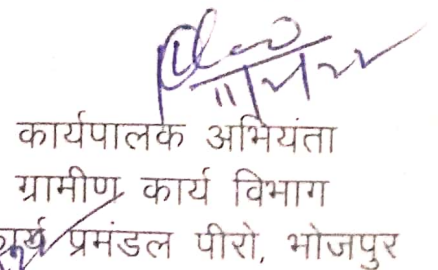 कार्यपालक अभियंता
ग्रामीण कार्य विभाग
कार्य प्रमंडल पीरो, भोजपुर